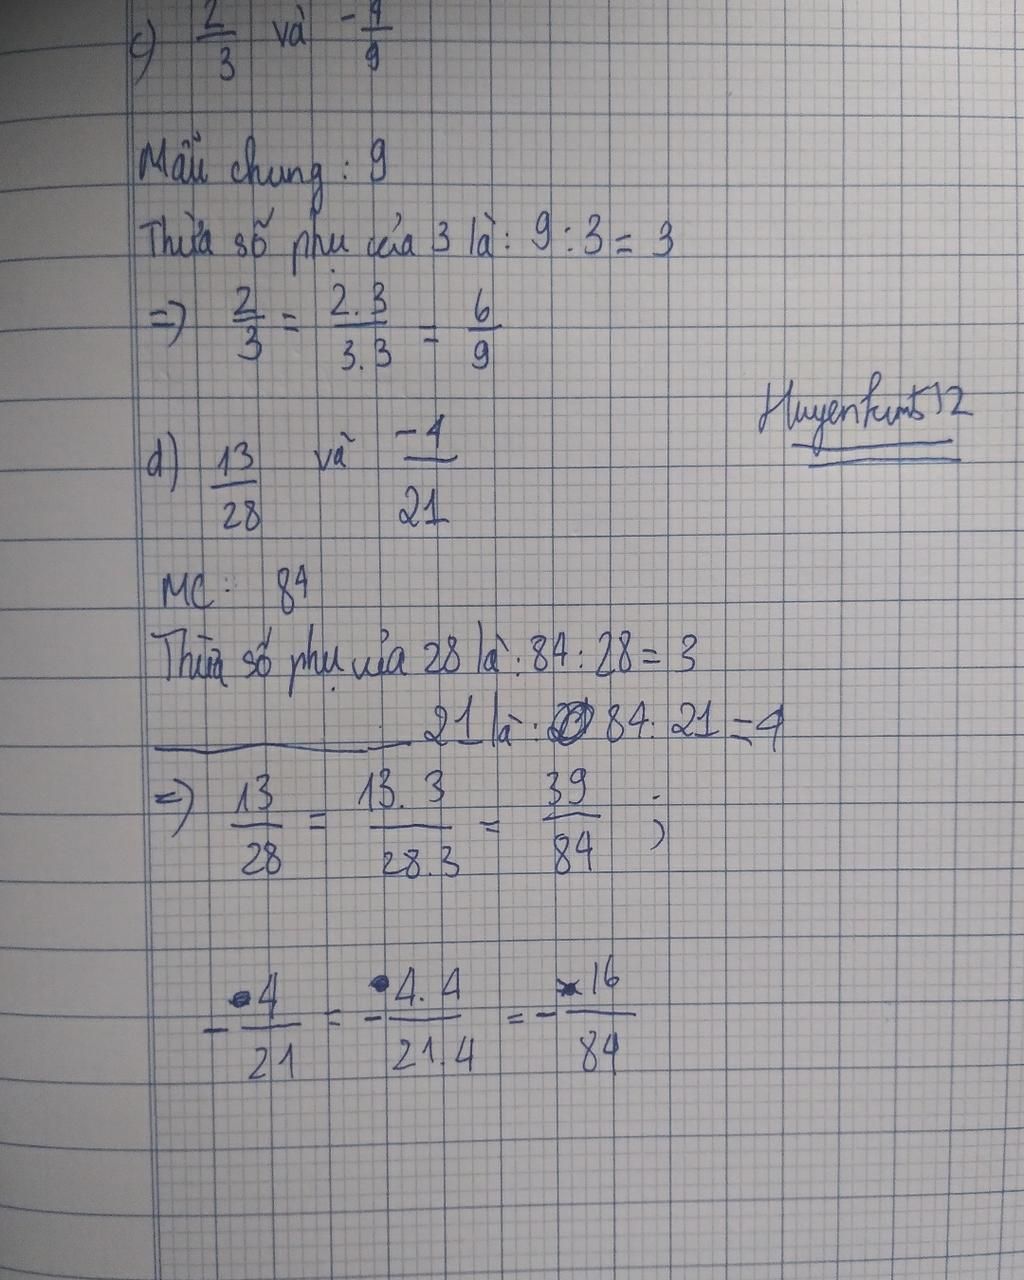 c) 2/3 và -4/9
Mẫu chung: 9
Thừa số phụ của 3 là: 9:3 = 3
=> 2/3 = 2.3/3.3 = 6/9
d) 13/28 và -4/21
MC: 84
Thừa số phụ của 28 là: 84:28 = 3
21 là: 84:21 = 4
=> 13/28 = 13.3/28.3 = 39/84 ;
-4/21 = -4.4/21.4 = -16/84